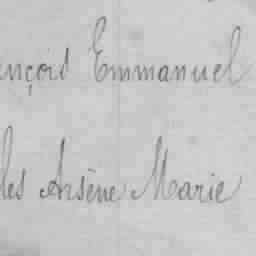 ançois Emmanuel
les Arsène Marie